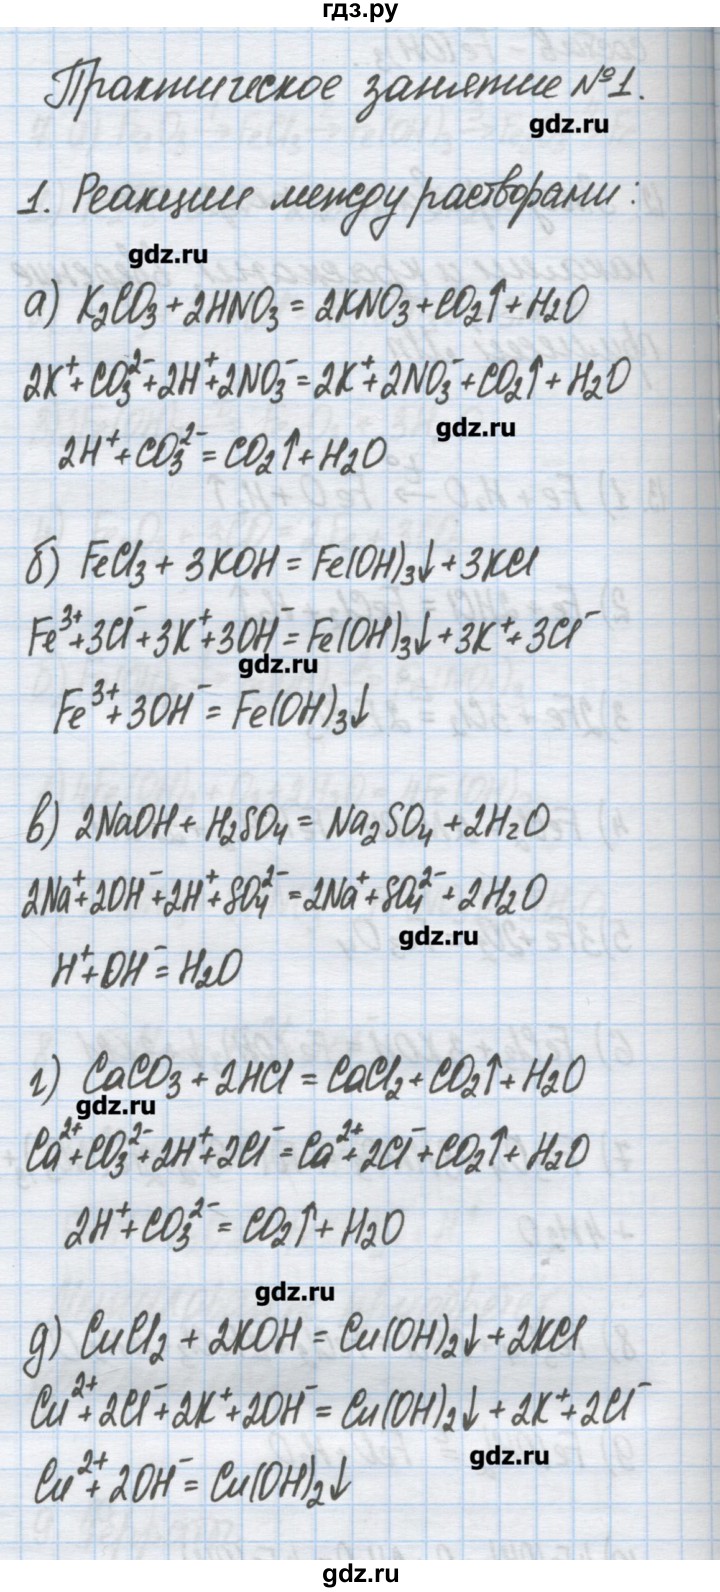 гдз.ру
Практическое занятие №1.
gdz.ru
1. Реакции между растворами:
gdz.ru
а) K₂CO₃ + 2HNO₃ = 2KNO₃ + CO₂↑ + H₂O
2K⁺ + CO₃²⁻ + 2H⁺ + 2NO₃⁻ = 2K⁺ + 2NO₃⁻ + CO₂↑ + H₂O
gdz.ru
2H⁺ + CO₃²⁻ = CO₂↑ + H₂O
б) FeCl₃ + 3KOH = Fe(OH)₃↓ + 3KCl
Fe³⁺ + 3Cl⁻ + 3K⁺ + 3OH⁻ = Fe(OH)₃↓ + 3K⁺ + 3Cl⁻
gdz.ru
Fe³⁺ + 3OH⁻ = Fe(OH)₃↓
в) 2NaOH + H₂SO₄ = Na₂SO₄ + 2H₂O
2Na⁺ + 2OH⁻ + 2H⁺ + SO₄²⁻ = 2Na⁺ + SO₄²⁻ + 2H₂O
gdz.ru
H⁺ + OH⁻ = H₂O
г) CaCO₃ + 2HCl = CaCl₂ + CO₂↑ + H₂O
gdz.ru
Ca²⁺ + CO₃²⁻ + 2H⁺ + 2Cl⁻ = Ca²⁺ + 2Cl⁻ + CO₂↑ + H₂O
2H⁺ + CO₃²⁻ = CO₂↑ + H₂O
gdz.ru
д) CuCl₂ + 2KOH = Cu(OH)₂↓ + 2KCl
Cu²⁺ + 2Cl⁻ + 2K⁺ + 2OH⁻ = Cu(OH)₂↓ + 2K⁺ + 2Cl⁻
gdz.ru
Cu²⁺ + 2OH⁻ = Cu(OH)₂↓
gdz.ru